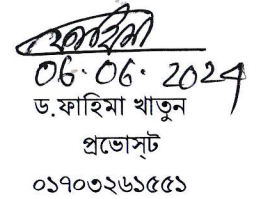 ফাহিমা
06.06.2024
ড.ফাহিমা খাতুন
প্রভোস্ট
০১৭০৩২৬১৫৫১